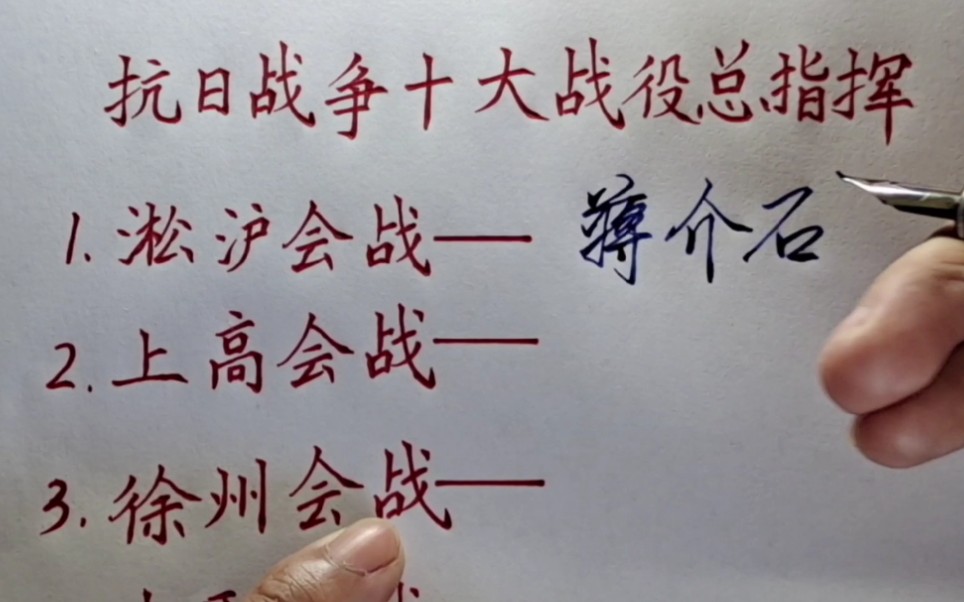 抗日战争十大战役总指挥
1.淞沪会战——蒋介石
2.上高会战——
3.徐州会战——